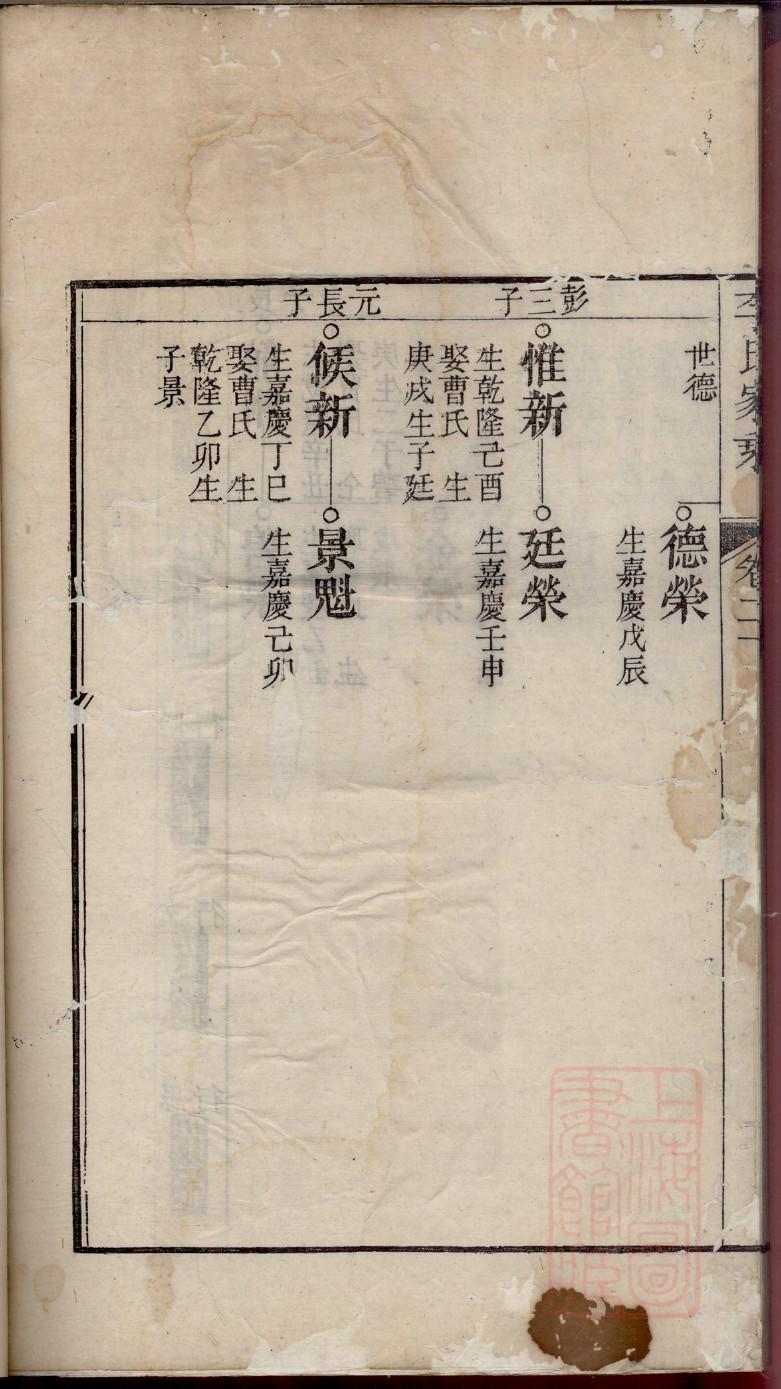 李氏家乘
卷二
世德
德榮
生嘉慶戊辰
彭三子
惟新
生乾隆己酉
娶曹氏 生
庚戌生子廷
廷榮
生嘉慶壬申
元長子
候新
生嘉慶丁巳
娶曹氏 生
乾隆乙卯生
子景
景魁
生嘉慶己卯
上海圖
書館藏